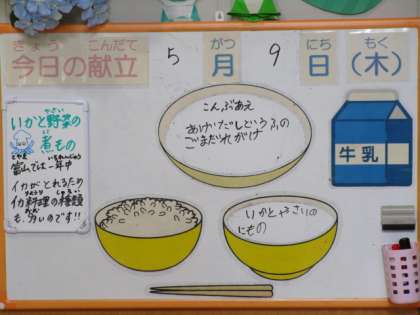 きょう こんだて
今日の献立
5
がつ
月
9
にち
日
もく
(木)
やさい
いかと野菜の
煮もの
とやま いちねんじゅう
富山では一年中
イカがとれるため
りょうり しゅるい
イカ料理の種類
おお
も多いのです!!
こんぶあえ
あげだしどうふの
ごまだれがけ
牛乳
いかとやさいの
にもの